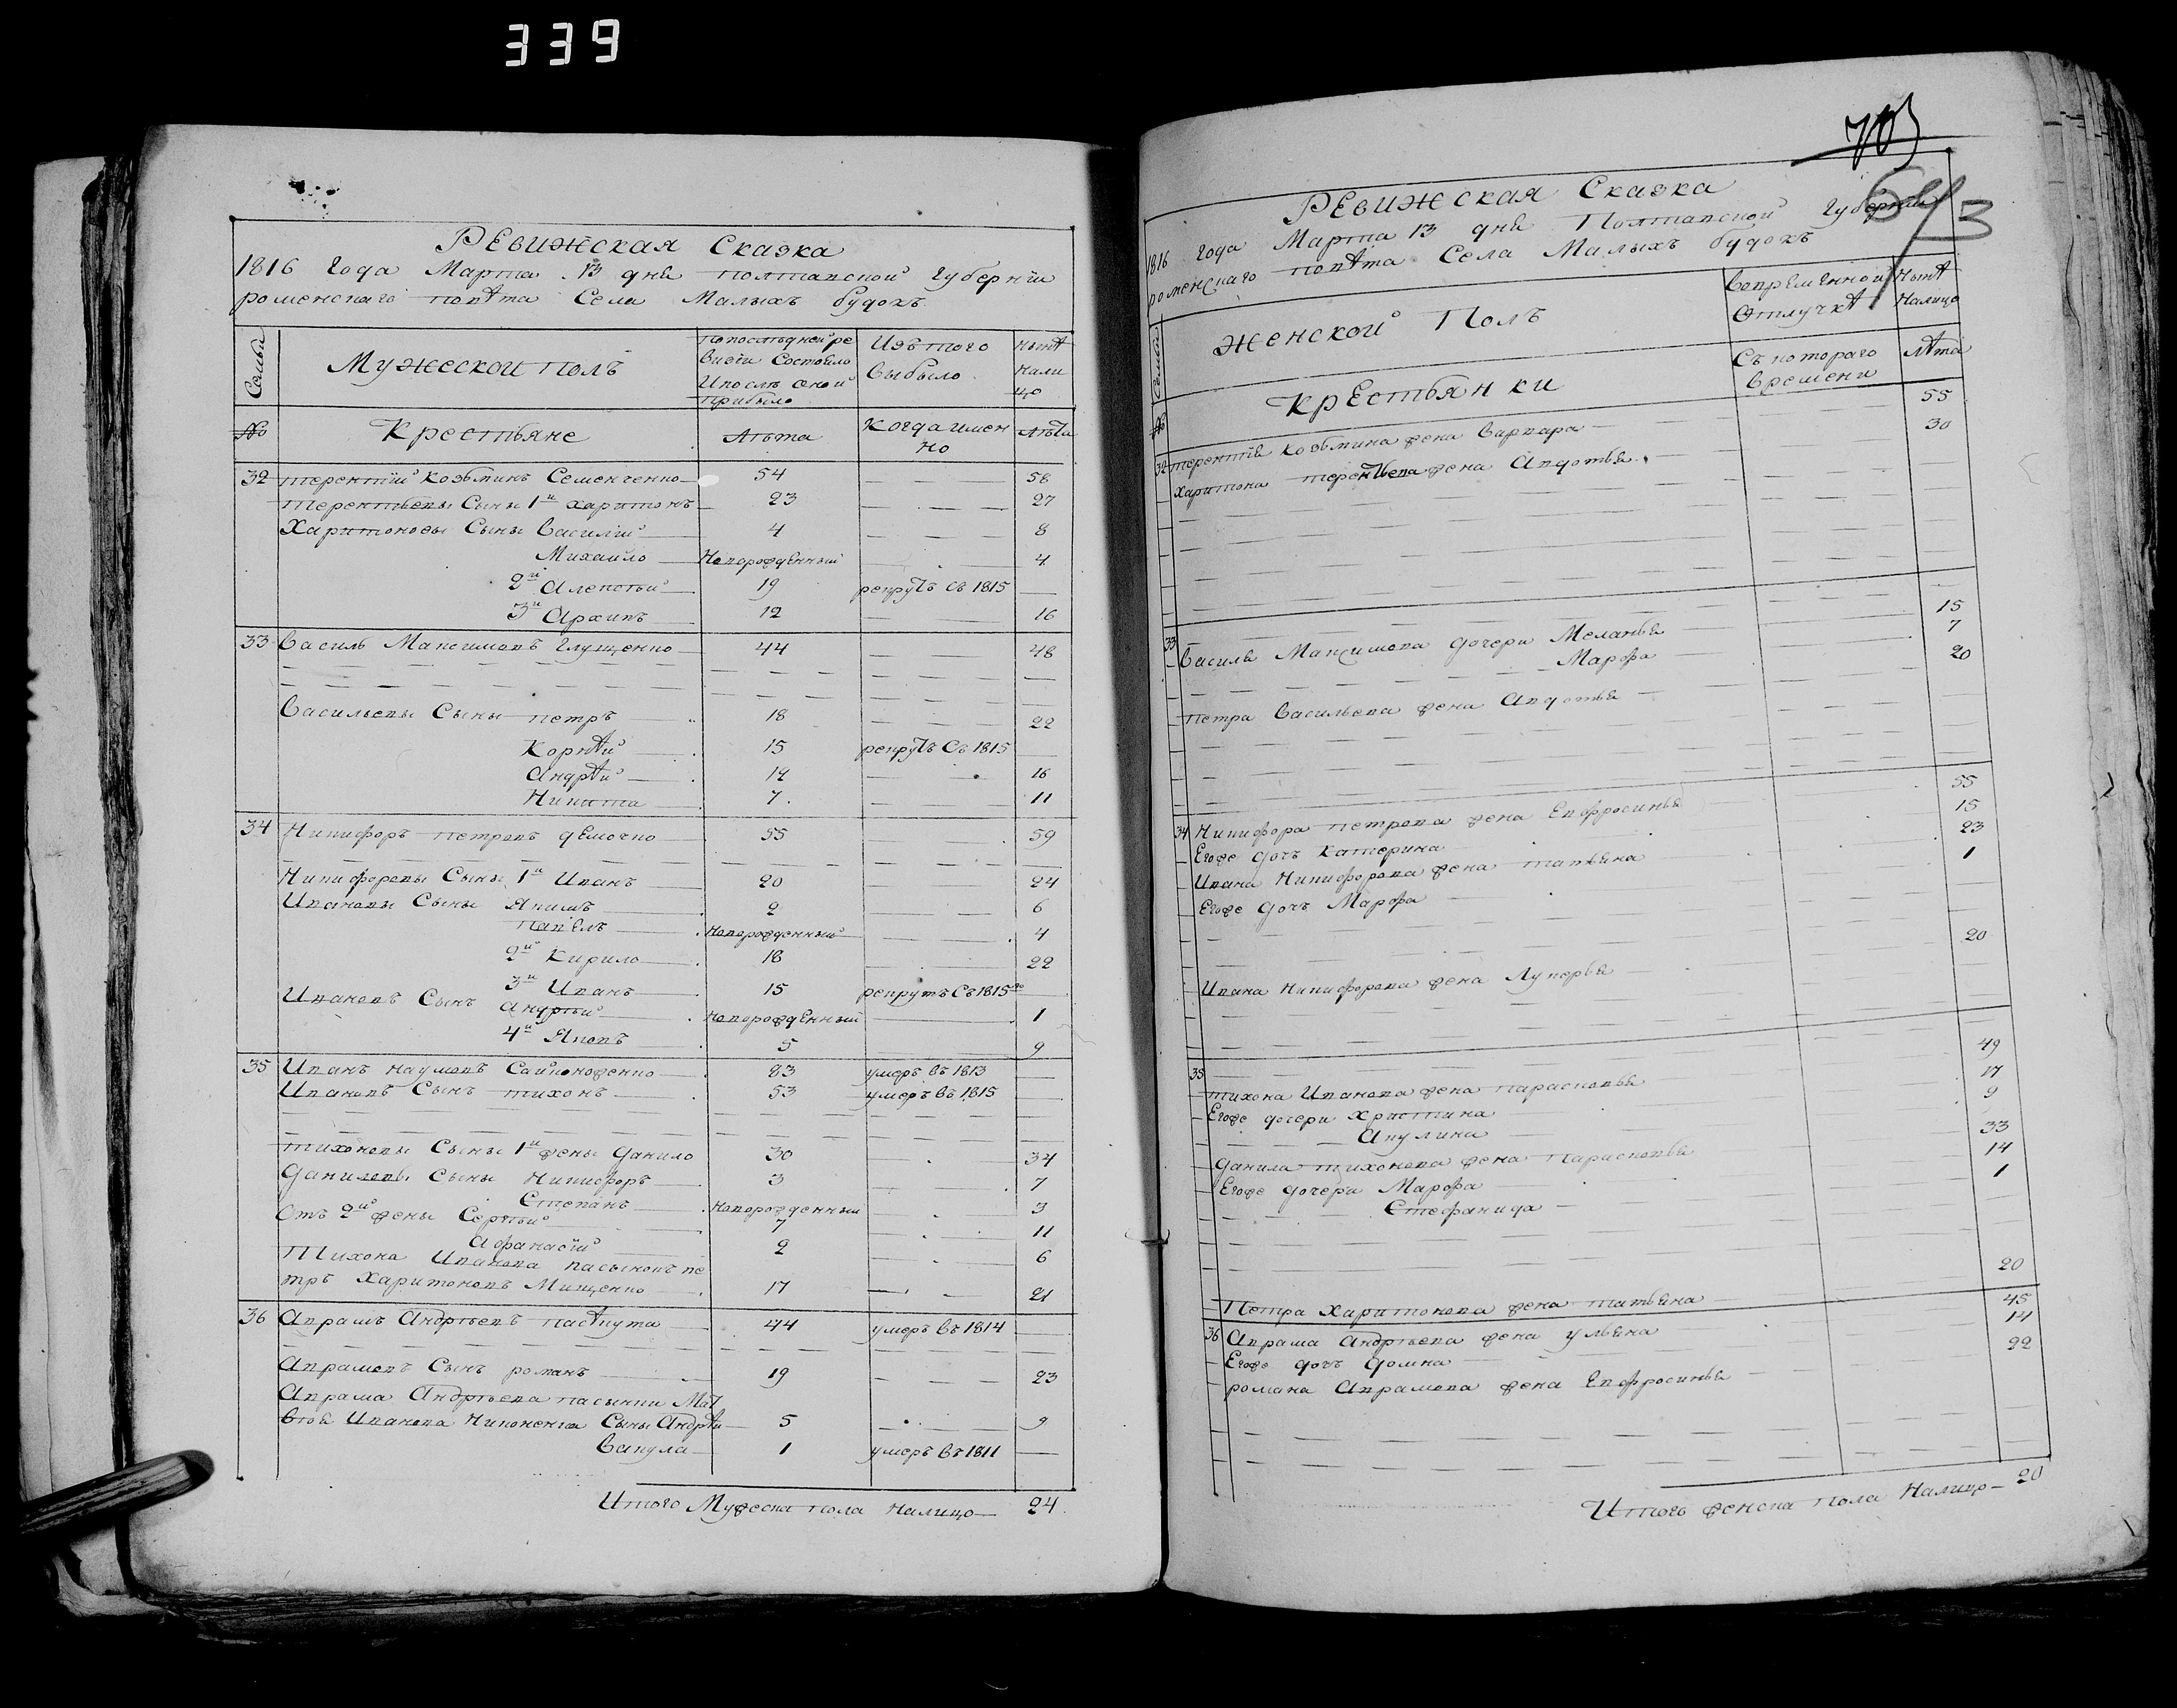 339
РЕвижская Сказка
1816 Года Марта 13 дня полтавской Губернїи
роменскаго повѣта Села Малыхъ будокъ
Семьи
Мужеской полъ
Попослѣдней ре
визїи Состояло
Ипослѣ оной
прибыло
Изътого
выбыло
нынѣ
нали
цо
№
Крестьяне
лѣта
Когдаимен
но
лѣта
32 терентїй козьминъ Семенченко 54 58
терентьевы Сыны 1й харитонъ 23 27
Харитоновы Сыны Василїй 4 8
Михайло Новорожденный 4
2й Алексѣй 19 рекрутъ съ 1815
3й Архипъ 12 16
33 Василь Максимовъ Глущенко 44 48
Васильевы Сыны петръ 18 22
Корнѣй 15 рекрутъ Съ 1815
Андрѣй 12 16
Никита 7 11
34 Никифоръ петровъ дЕмочко 55 59
Никифоровы Сыны 1й Иванъ 20 24
Ивановы Сыны Якимъ 2 6
павелъ Новорожденный 4
2й Кирило 18 22
3й Иванъ 15 рекрутъ Съ 1815го
Ивановъ Сынъ Андрѣй Новорожденный 1
4й Яковъ 5 9
35 Иванъ наумовъ 83 умеръ въ 1813
Ивановъ Сынъ тихонъ 53 умеръ въ 1815
тихоновы Сыны 1й жены данило 30 34
даниловы Сыны Никифоръ 3 7
Степанъ Новорожденный 3
Отъ 2й жены Сергѣй 7 11
Афанасїй 2 6
Тихона Иванова пасынокъ пе
тръ Харитоновъ Мищенко 17 21
36 Аврамъ Андрѣевъ 44 умеръ въ 1814
Аврамовъ Сынъ романъ 19 23
Аврама Андрѣева пасынки Мат
вѣя Иванова Сыны Андрѣй 5 9
Вакула 1 умеръ въ 1811
Итого Мужеска пола Налицо 24
703
3
РЕвижская Сказка
1816 Года Марта 13 дня Полтавской Губернїи
роменскаго повѣта Села Малыхъ будокъ
Семьи
женской Полъ
Вовременной
Отлучкѣ
Нынѣ
Налицо
№
крЕстьянки
Съкотораго
времени
лѣта
32 терентїя козьмина жена Варвара 55
харитона терентьева жена Авдотья 30
33 Василя Максимова дочери Меланья 15
Марфа 7
петра Васильева жена Авдотья 20
34 Никифора петрова жена Евфросинья 55
Егоже дочъ катерина 15
Ивана Никифорова жена татьяна 23
Егоже дочъ Марфа 1
Ивана Никифорова жена Лукерья 20
35 тихона Иванова жена парасковья 49
Егоже дочери христина 17
Акулина 9
данила тихонова жена парасковья 33
Егоже дочери Марфа 14
Стефанида 1
Петра харитонова жена татьяна 20
36 Аврама Андрѣева жена ульяна 45
Егоже дочъ домна 14
романа Аврамова жена Евфросинья 22
Итого женска пола Налицо 20